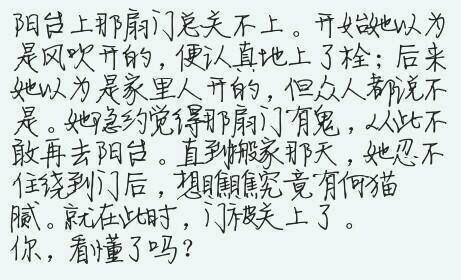 阳台上那扇门总关不上。开始她以为
是风吹开的，便认真地上了栓；后来
她以为是家里人开的，但众人都说不
是。她隐约觉得那扇门有鬼，从此不
敢再去阳台。直到搬家那天，她忍不
住绕到门后，想瞧瞧究竟有何猫
腻。就在此时，门被关上了。
你，看懂了吗？